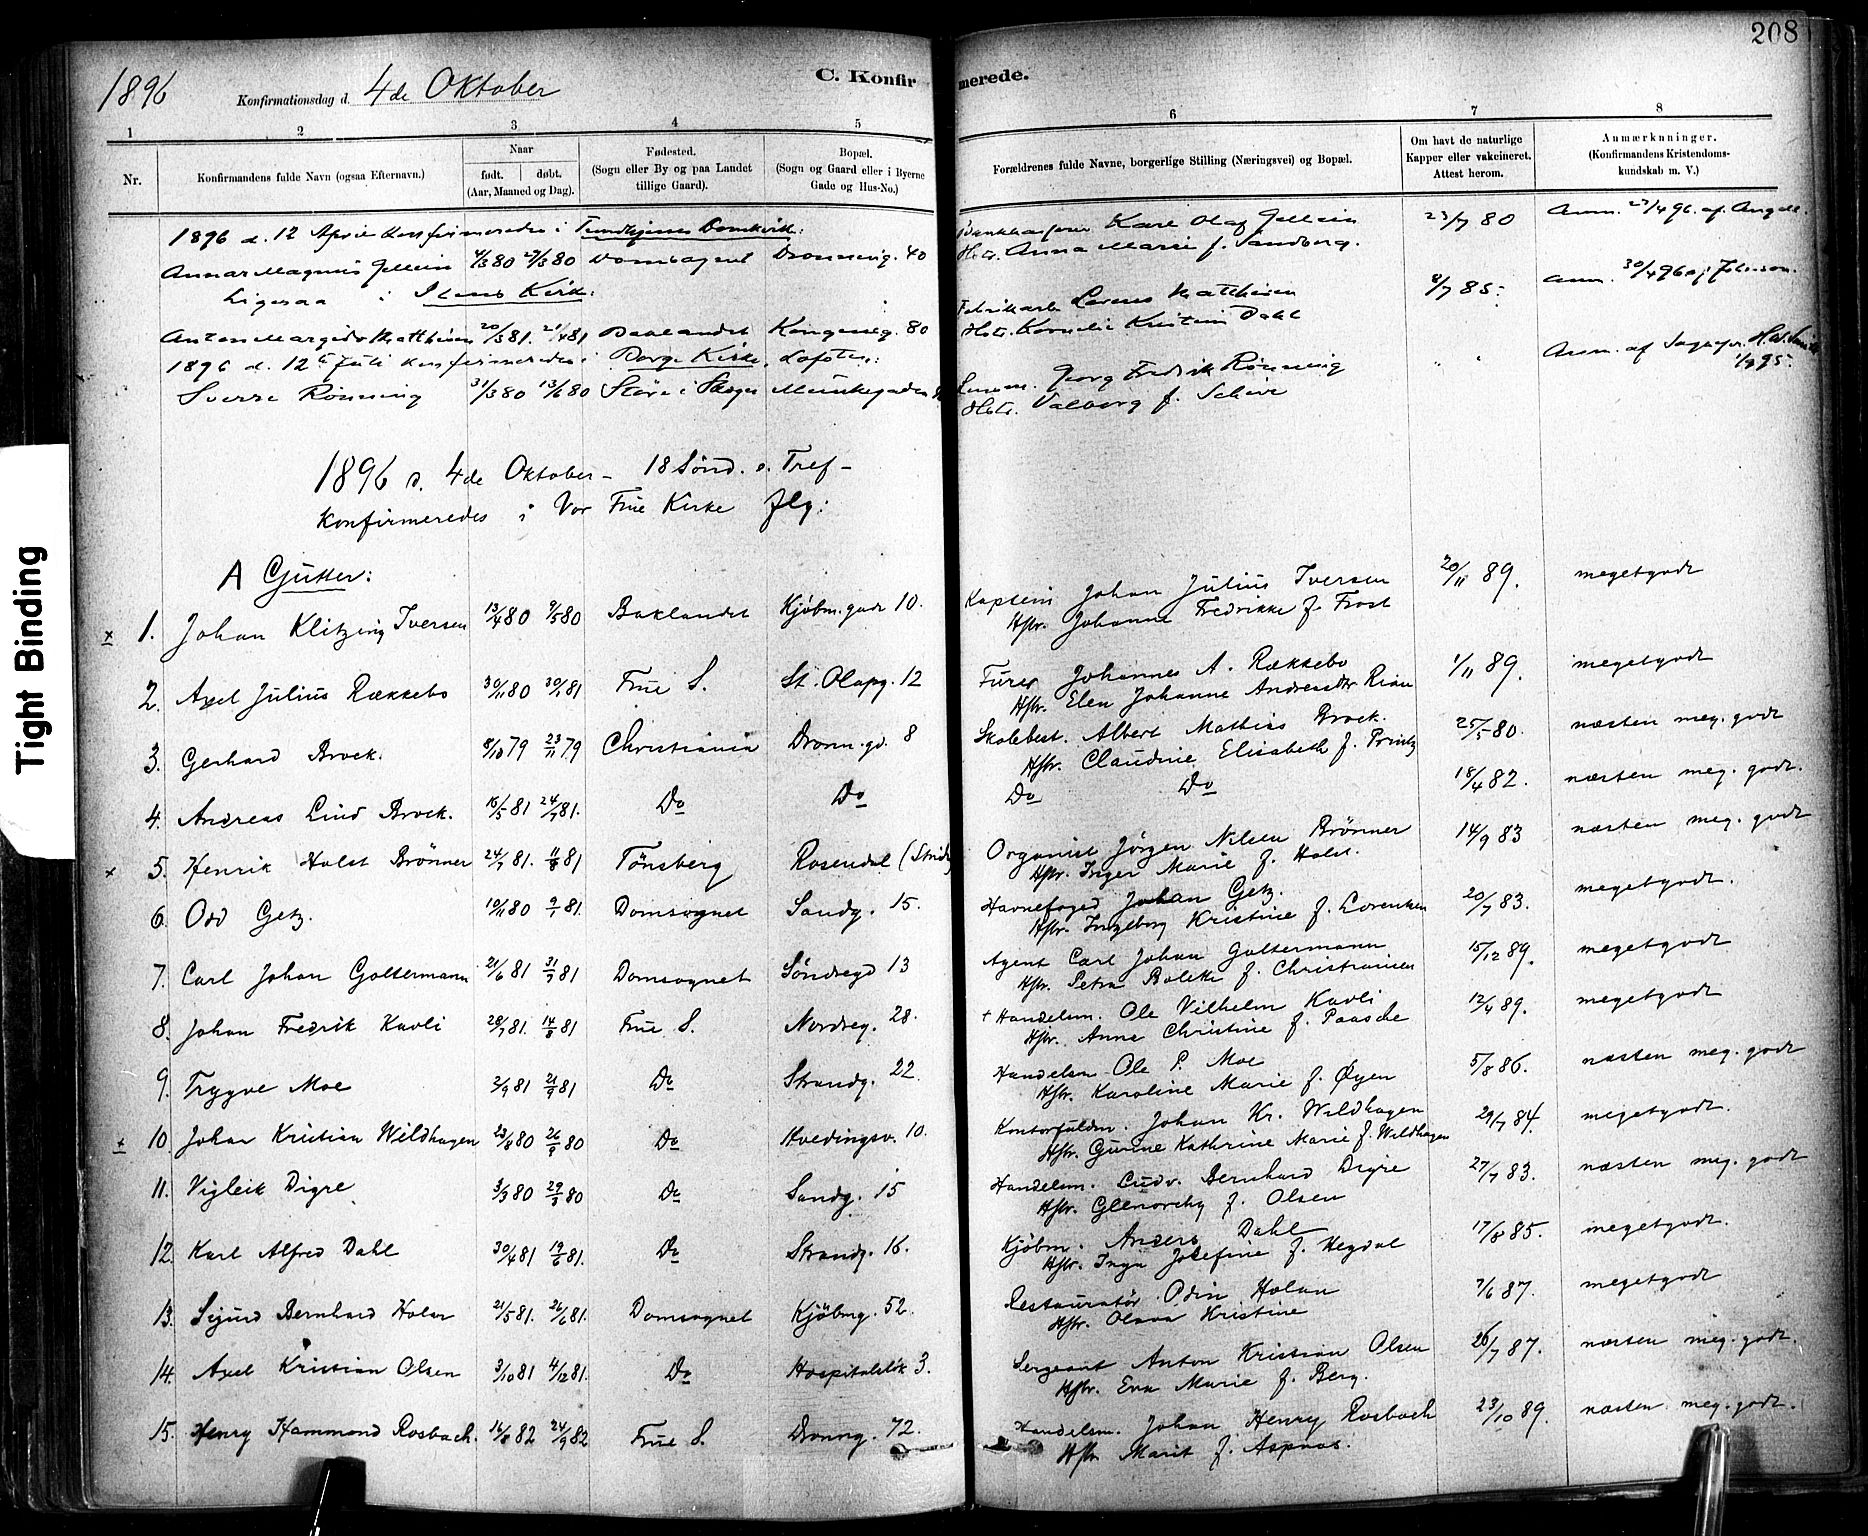 208
1896 Konfirmationsdag d. 4de Oktober C. Konfirmerede.
1 2 3 4 5 6 7 8
Nr. Konfirmandens fulde Navn (ogsaa Efternavn.) Naar født. døbt. (Aar, Maaned og Dag). Fødested. (Sogn eller By og paa Landet tillige Gaard). Bopæl. (Sogn og Gaard eller i Byerne Gade og Hus-No.) Forældrenes fulde Navne, borgerlige Stilling (Næringsvei) og Bopæl. Om havt de naturlige Kapper eller vakcineret. Attest herom. Anmærkninger. (Konfirmandens Kristendomskundskab m. V.)
1896 d. 12 April konfirmeredes i Domkirk:
Magnus 80 80 Domsognet Dronning. 40 Karl Olaf 23/7 80 Anm. af
Hstr. Anna Marie f. Sandberg.
Ligesaa i Ilens Kirke:
Matthisen 20/3 81. 21/4 81 Baklandet Kongensg. 80 Matthisen 8/7 85 Anm.
Hstr. Kornelie Kristine Dahl
1896 d. 12te Juli konfirmeredes i Borge Kirke, Lofoten:
Sverre Rønning 31/3 80 13/6 80 Munkegaden Georg Fredrik Rønning Anm. af
Hstr. Valborg f.
1896 d. 4de Oktober - 18 Sønd. e. Tref -
Konfirmeredes i Vor Frue Kirke flg:
A Gutter:
x 1. Johan Klitzing Iversen 13/4 80 9/5 80 Baklandet Kjøbm.gade 10. Kaptein Johan Julius Iversen 20/11 89. megetgodt
Hstr. Johanne Fredrikke f. Frost
2. Axel Julius Rækkebo 30/11 80 30/1 81 Frue S. St. Olapg. 12 Furer Johannes A. Rækkebo 1/11 89. megetgodt
Hstr. Elen Johanne Andreasdtr
3. Gerhard Brock. 8/10 79 23/11 79 Christiania Dronn.gd. 8 Skolebest. Albert Mathias Brock. 25/5 80. næsten meg. godt
Hstr. Claudine Elisabeth f. Printz
4. Andreas Lind Brock. 16/5 81 24/7 81. Do Do Do Do 18/4 82. næsten meg. godt.
x 5. Henrik Holst Brönner 24/7 81. 11/9 81 Tönsberg Rosendal Organist Jörgen Nilsen Brönner 14/9 83 næsten meg. godt
Hstr. Inger Marie f. Holst.
6. Odd Getz. 19/11 80 9/1 81. Domsognet Sandg. 15. Havnefoged Johan Getz. 20/7 83. megetgodt.
Hstr. Ingeborg Kristine f. Lorentzen
7. Carl Johan Goltermann 21/6 81 31/7 81 Domsognet Söndregd 13 Agent Carl Johan Goltermann 15/12 89. megetgodt
Hstr. Petra Bolette f. Christiansen
8. Johan Fredrik Kavli 28/7 81. 14/8 81 Frue S. Nordreg. 28. + Handelsm. Ole Vilhelm Kavli 12/4 89. megetgodt
Hstr. Anne Christine f. Paasche
9. Trygve Moe 2/9 81 21/9 81 Do Strandg. 22. Handelsm Ole P. Moe 5/8 86. næsten meg. godt
Hstr. Karoline Marie f. Øyen
x 10. Johan Kristian Wildhagen 23/8 80 26/9 80 Do Hvedingsv. 10. Kontorfuldm. Johan Kr. Wildhagen 29/7 84. megetgodt.
Hstr. Gurine Kathrine Marie f. Wildhagen
11. Vigleik Digre 3/3 80 29/3 80 Do Sandg. 15 Handelsm. Ludv. Bernhard Digre 27/7 83. næsten meg. godt
Hstr. Glenorchy f. Olsen
12. Karl Alfred Dahl 30/4 81 19/6 81. Do Strandg. 16. Kjöbm. Anders Dahl 17/8 85. megetgodt.
Hstr. Inga Josefine f. Hegdal
13. Sigurd Bernhard Holan 21/5 81. 26/6 81. Domsognet Kjöbmg. 52. Restauratör Odin Holan 7/6 87. megetgodt
Hstr. Olava Kristine
14. Axel Kristian Olsen 3/10 81 4/12 81. Do Hospitalslök 3. Sergeant Anton Kristian Olsen 26/7 87. næsten meg. godt.
Hstr. Eva Marie f. Berg.
15. Henry Hammond Rosbach. 16/8 82 24/9 82 Frue S. Dronng. 72. Handelsm. Johan Henry Rosbach 23/10 89. næsten meg. godt.
Hstr Marit f. Aspaas.
Tight Binding